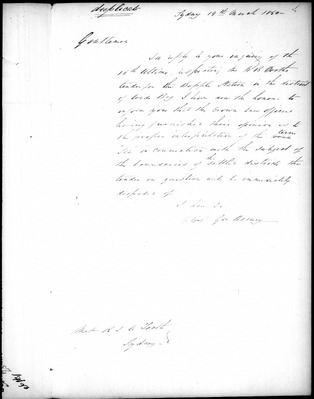 Duplicate
Sydney 19th March 1850
Gentlemen
In reply to your enquiry of the
18th Ultimo respecting Mr
tender for the Station in the district
of Wide Bay I have now the honor to
inform you that the Crown Law Officers
having furnished their opinion as to
the proper interpretation of the term
in connexion with the subject of
the boundaries of the settled districts the
tender in question will be immediately
disposed of
I have &c
Messrs R &
Sydney